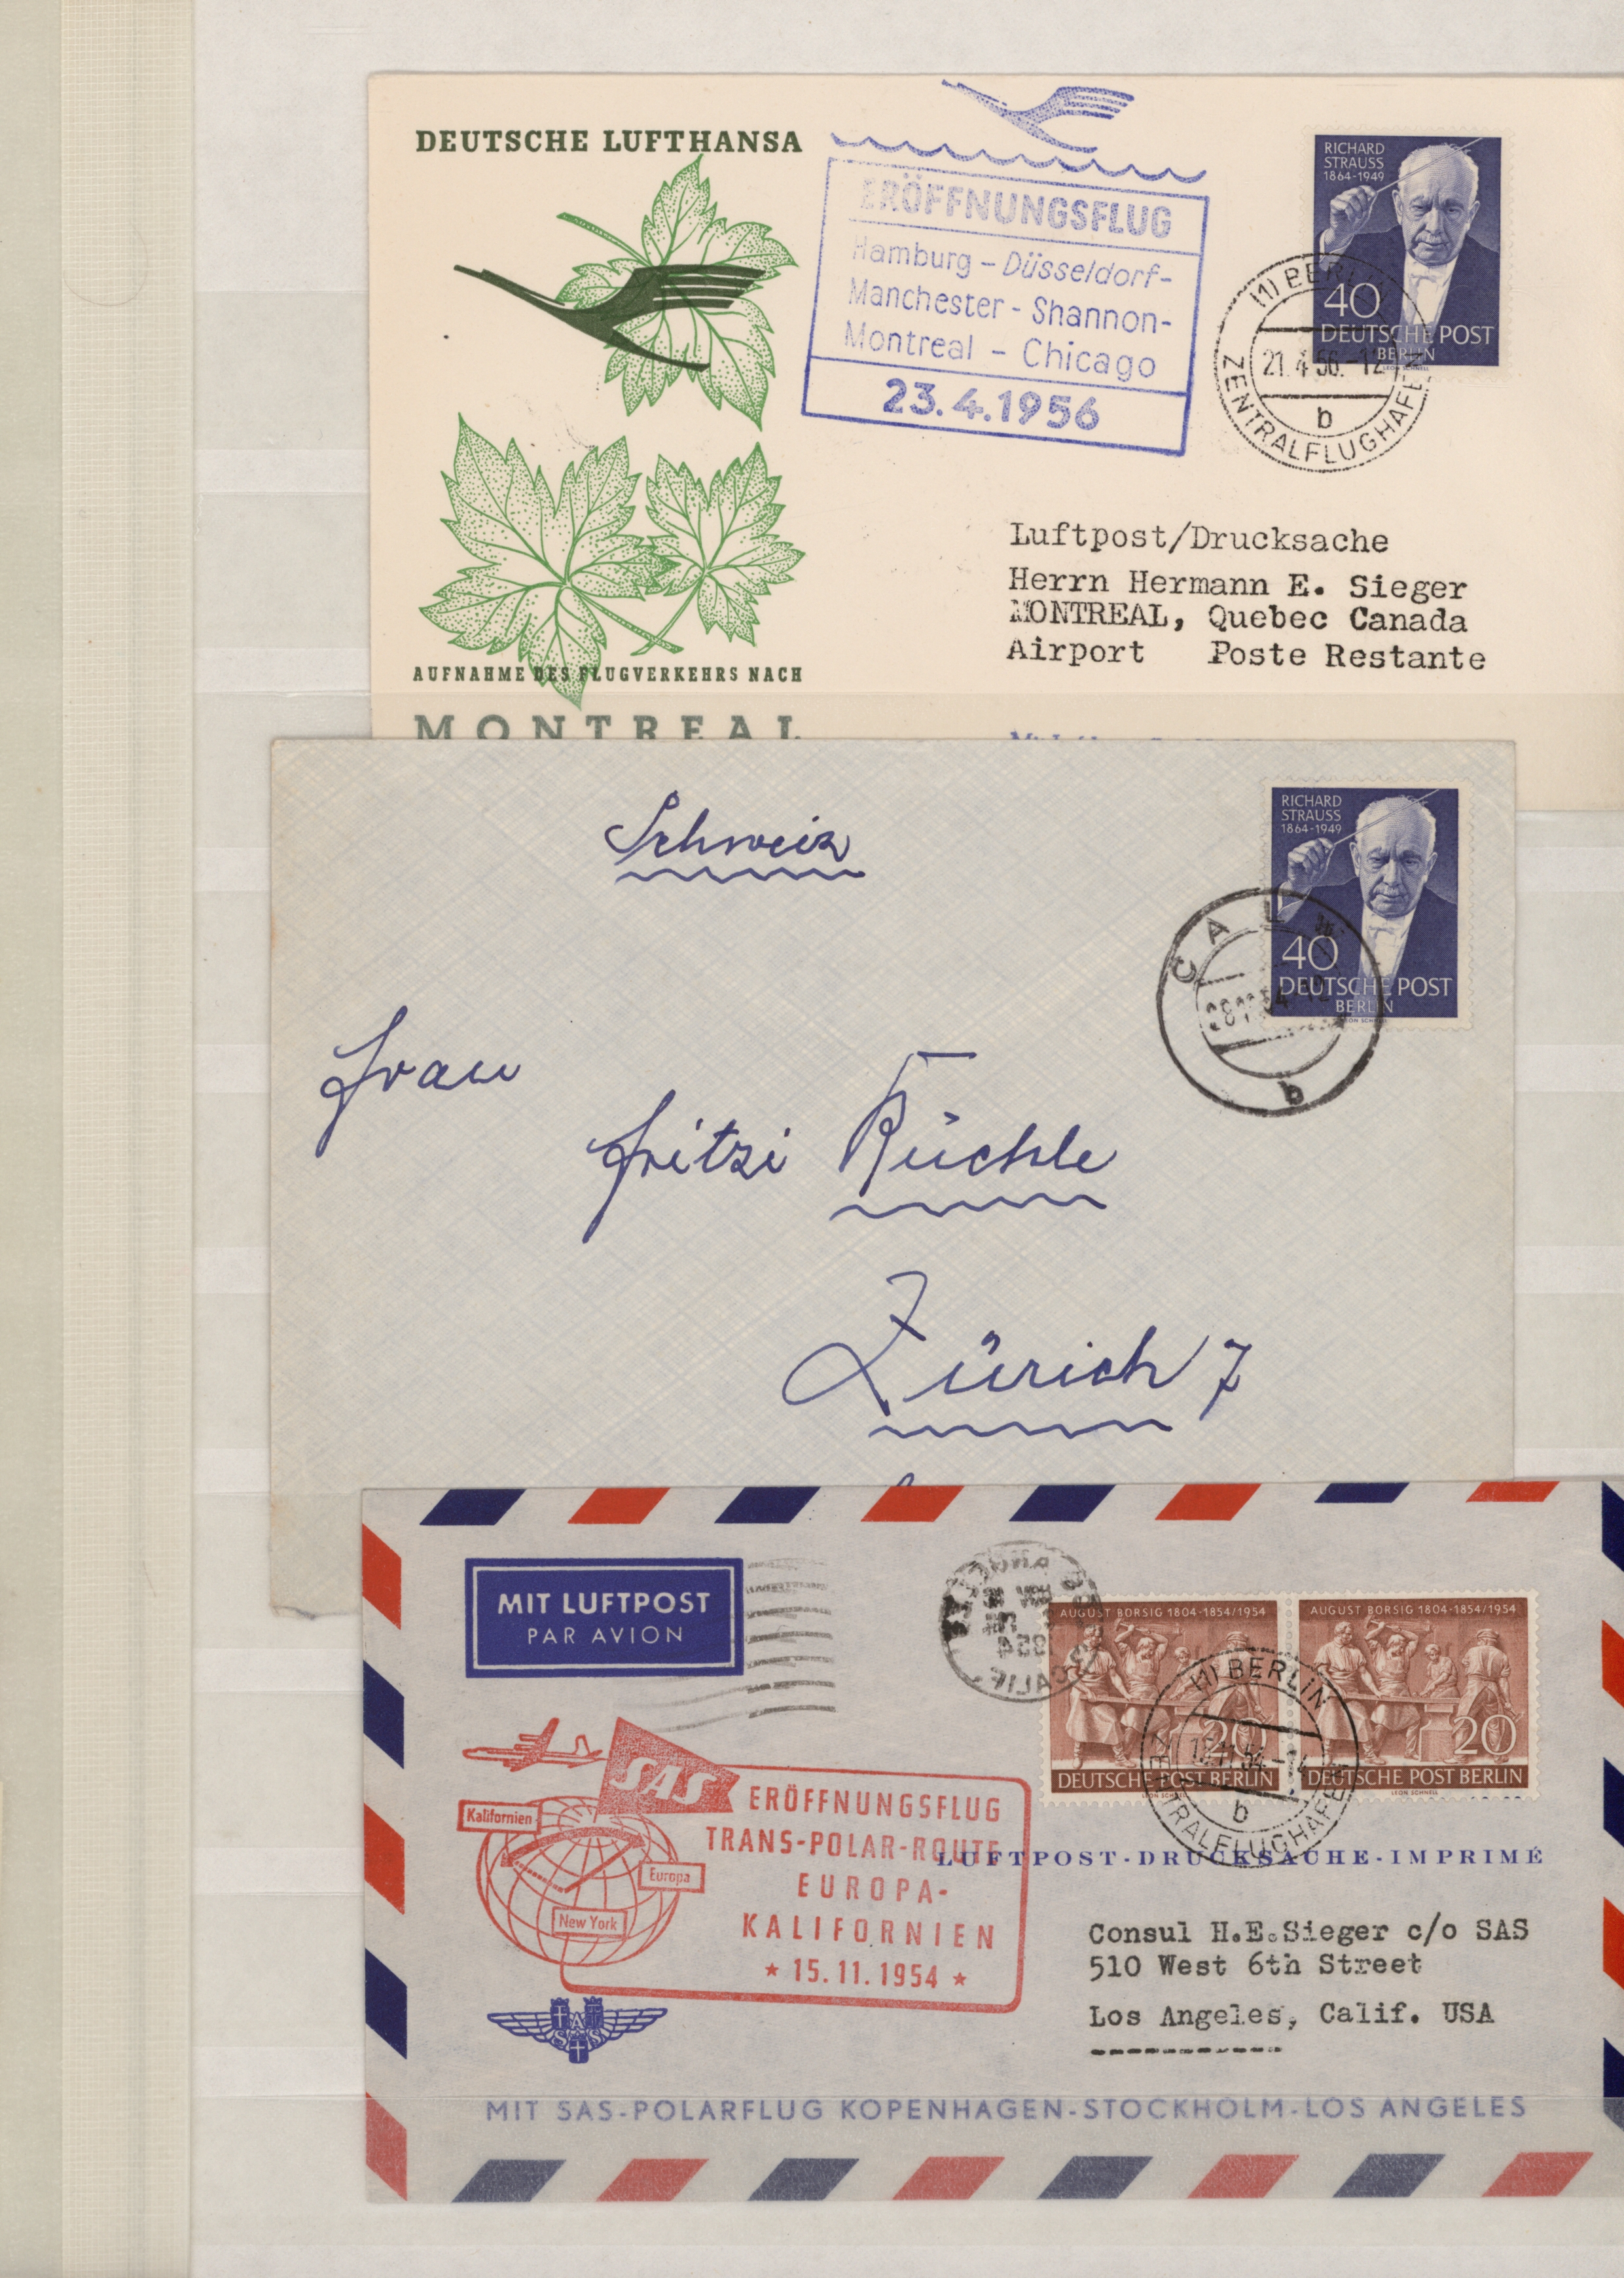 DEUTSCHE LUFTHANSA
ERÖFFNUNGSFLUG
Hamburg - Düsseldorf-
Manchester - Shannon-
Montreal - Chicago
23.4.1956
RICHARD
STRAUSS
1864-1949
40
DEUTSCHE POST
BERLIN
LEON SCHNELL
(1) BERLIN
21.4.56.-12
b
ZENTRALFLUGHAFEN
Luftpost/Drucksache
Herrn Hermann E. Sieger
MONTREAL, Quebec Canada
Airport Poste Restante
AUFNAHME DES FLUGVERKEHRS NACH
MONTREAL
Schweiz
RICHARD
STRAUSS
1864-1949
40
DEUTSCHE POST
BERLIN
LEON SCHNELL
CALW
b
Frau
Fritzi Rüchle
Zürich 7
MIT LUFTPOST
PAR AVION
1954
CALIF.
AUGUST BORSIG 1804-1854/1954
20
DEUTSCHE POST BERLIN
LEON SCHNELL
AUGUST BORSIG 1804-1854/1954
20
DEUTSCHE POST BERLIN
LEON SCHNELL
(1) BERLIN
b
ZENTRALFLUGHAFEN
SAS
Kalifornien
Europa
New York
ERÖFFNUNGSFLUG
TRANS-POLAR-ROUTE
EUROPA-
KALIFORNIEN
* 15.11.1954 *
LUFTPOST-DRUCKSACHE-IMPRIMÉ
Consul H.E.Sieger c/o SAS
510 West 6th Street
Los Angeles, Calif. USA
SAS
MIT SAS-POLARFLUG KOPENHAGEN-STOCKHOLM-LOS ANGELES